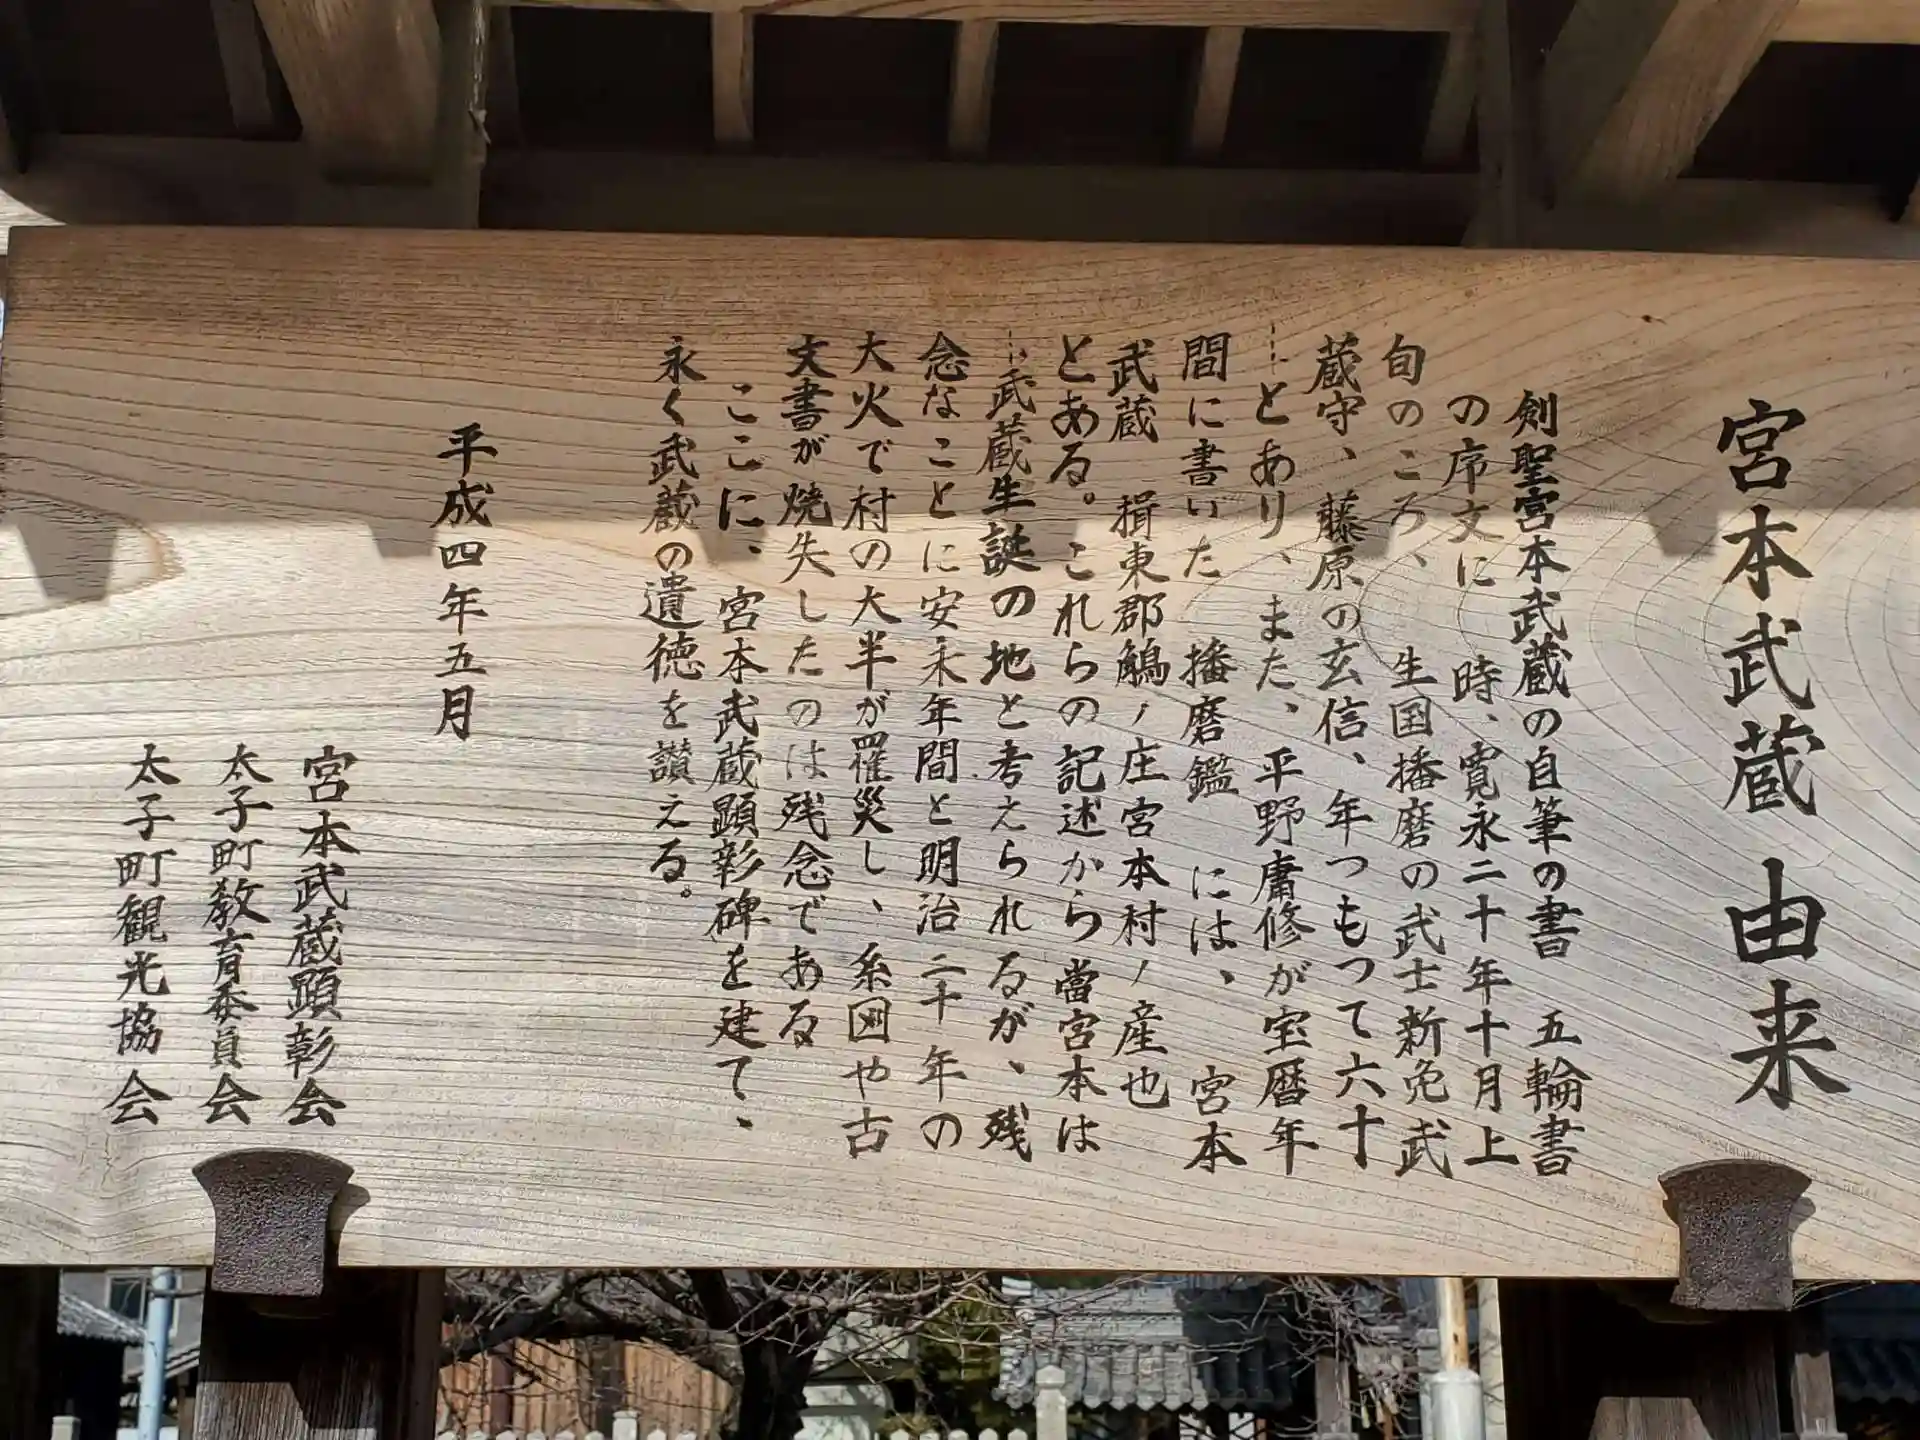 宮本武蔵 由来
剣聖宮本武蔵の自筆の書 五輪書
の序文に 時、寛永二十年十月上
旬のころ、生国播磨の武士新免武
蔵守、藤原の玄信、年つもつて六十
…とあり、また、平野庸修が宝暦年
間に書いた 播磨鑑 には、 宮本
武蔵 揖東郡鵤ノ庄宮本村ノ産也
とある。これらの記述から當宮本は
…武蔵生誕の地と考えられるが、残
念なことに安永年間と明治二十年の
大火で村の大半が罹災し、系図や古
文書が焼失したのは残念である
ここに、宮本武蔵顕彰碑を建て、
永く武蔵の遺徳を讃える。
平成四年五月
宮本武蔵顕彰会
太子町教育委員会
太子町観光協会